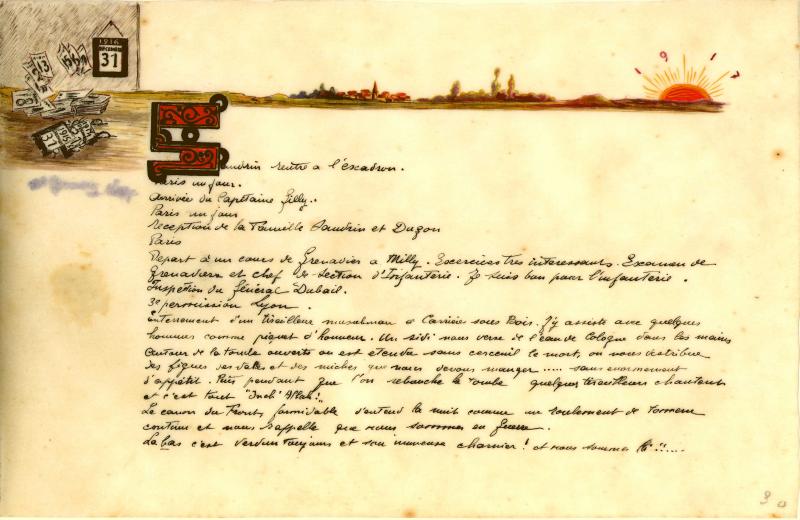 1916
DECEMBRE
31
1917
13
1915
31
rentre à l'escadron.
Paris un jour.
Arrivée du Capitaine Gilly.
Paris un jour
Réception de la Famille Sandrin et Dugon
Paris
Départ à un cours de Grenadier à Milly. Excercices très interessants. Examen de
Grenadiers et chef de Section d'Infanterie. Je suis bon pour l'infanterie.
Inspection du Général Dubail.
3e permission Lyon.
Enterrement d'un tirailleur musulman à Carrières sous Bois. J'y assiste avec quelques
hommes comme piquet d'honneur. Un sidi nous verse de l'eau de Cologne dans les mains
autour de la tombe ouverte où est étendu sans cercueil le mort, on nous distribue
des figues, des dattes et des miches que nous devons manger ..... sans enormement
d'appétit. Puis pendant que l'on rebouche la tombe quelques tirailleurs chantent
et c'est tout "Inch' Allah!"
Le canon du Front, formidable s'entend la nuit comme un roulement de tonnerre
continu et nous rappelle que nous sommes en Guerre.
La bas c'est Verdun toujours et son immense charnier! et nous sommes là !!.....